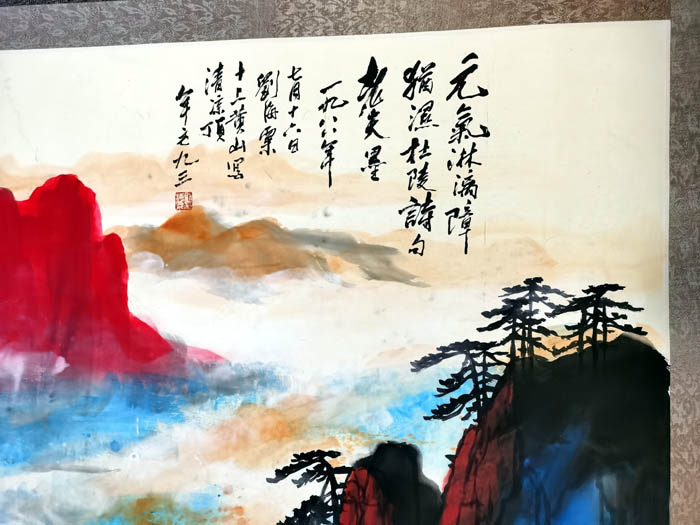 元氣淋漓障
猶濕杜陵詩句
墨
一九八八年
七月十六日
劉海粟
十上黄山写
清凉頂
年九三